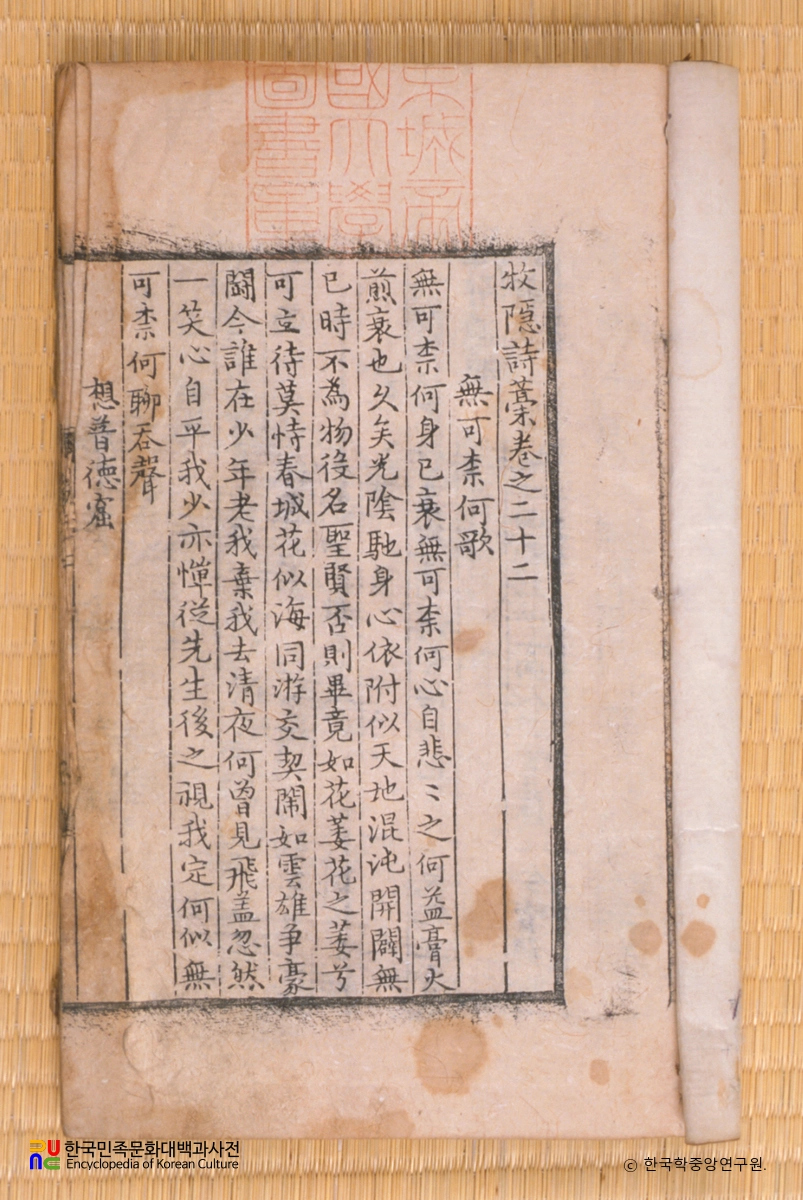 京城帝
國大學
圖書章
牧隱詩藁卷之二十二
無可柰何歌
無可柰何身已衰無可柰何心自悲〻之何益膏火
煎衰也久矣光陰馳身心依附似天地混沌開闢無
已時不為物役名聖賢否則畢竟如花萎花之萎兮
可立待莫恃春城花似海同游交契鬧如雲雄爭豪
鬪今誰在少年老我棄我去清夜何曾見飛盖忽然
一笑心自平我少亦憚從先生後之視我定何似無
可柰何聊吞聲
想普德窟
한국민족문화대백과사전
Encyclopedia of Korean Culture
© 한국학중앙연구원.